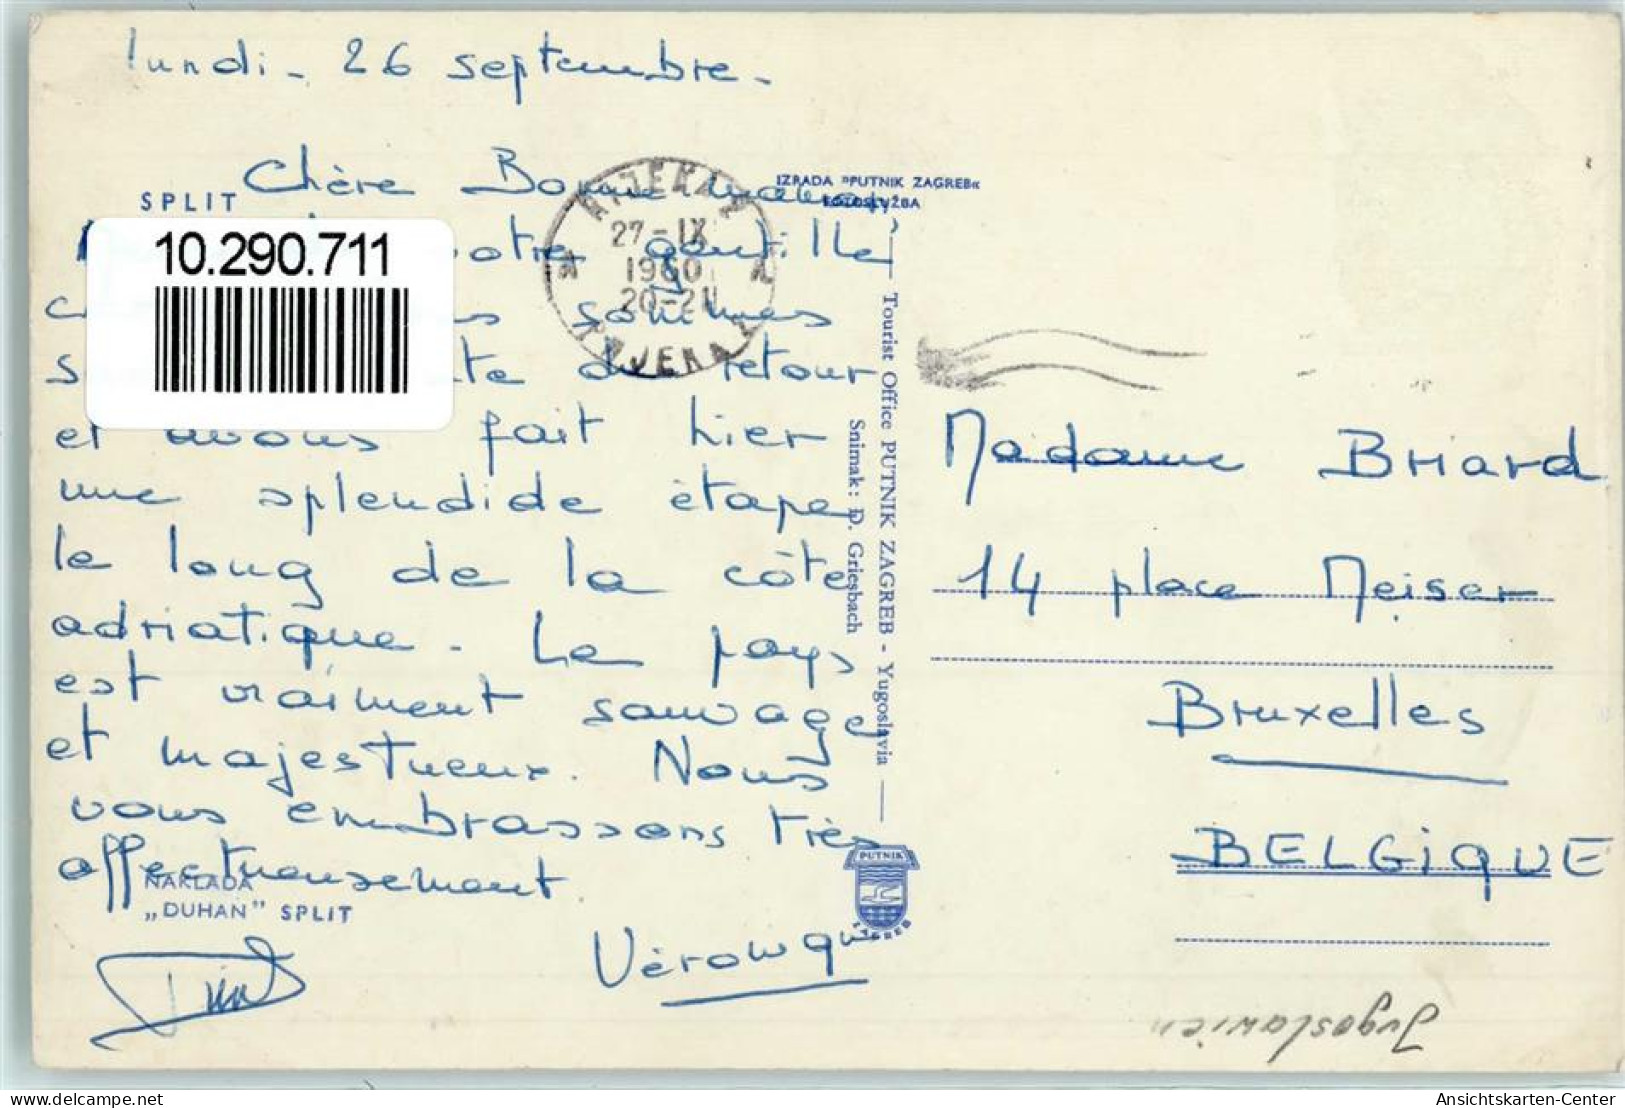 lundi - 26 septembre -
Chère Bonne maman,
SPLIT
10.290.711
notre gentille
sommes
du retour
et avons fait hier
une splendide étape
le long de la côte
adriatique. Le pays
est vraiment sauvage
et majestueux. Nous
vous embrassons très
affectueusement.
NAKLADA
„DUHAN” SPLIT
Véronique
RIJEKA
27-IX
1960
20-21
RIJEKA
IZRADA »PUTNIK ZAGREB«
FOTOSLUŽBA
Tourist Office PUTNIK ZAGREB - Yugoslavia
Snimak: D. Griesbach
PUTNIK
ZAGREB
Madame Briard
14 place Meiser
Bruxelles
BELGIQUE
Jugoslawien
www.delcampe.net
Ansichtskarten-Center